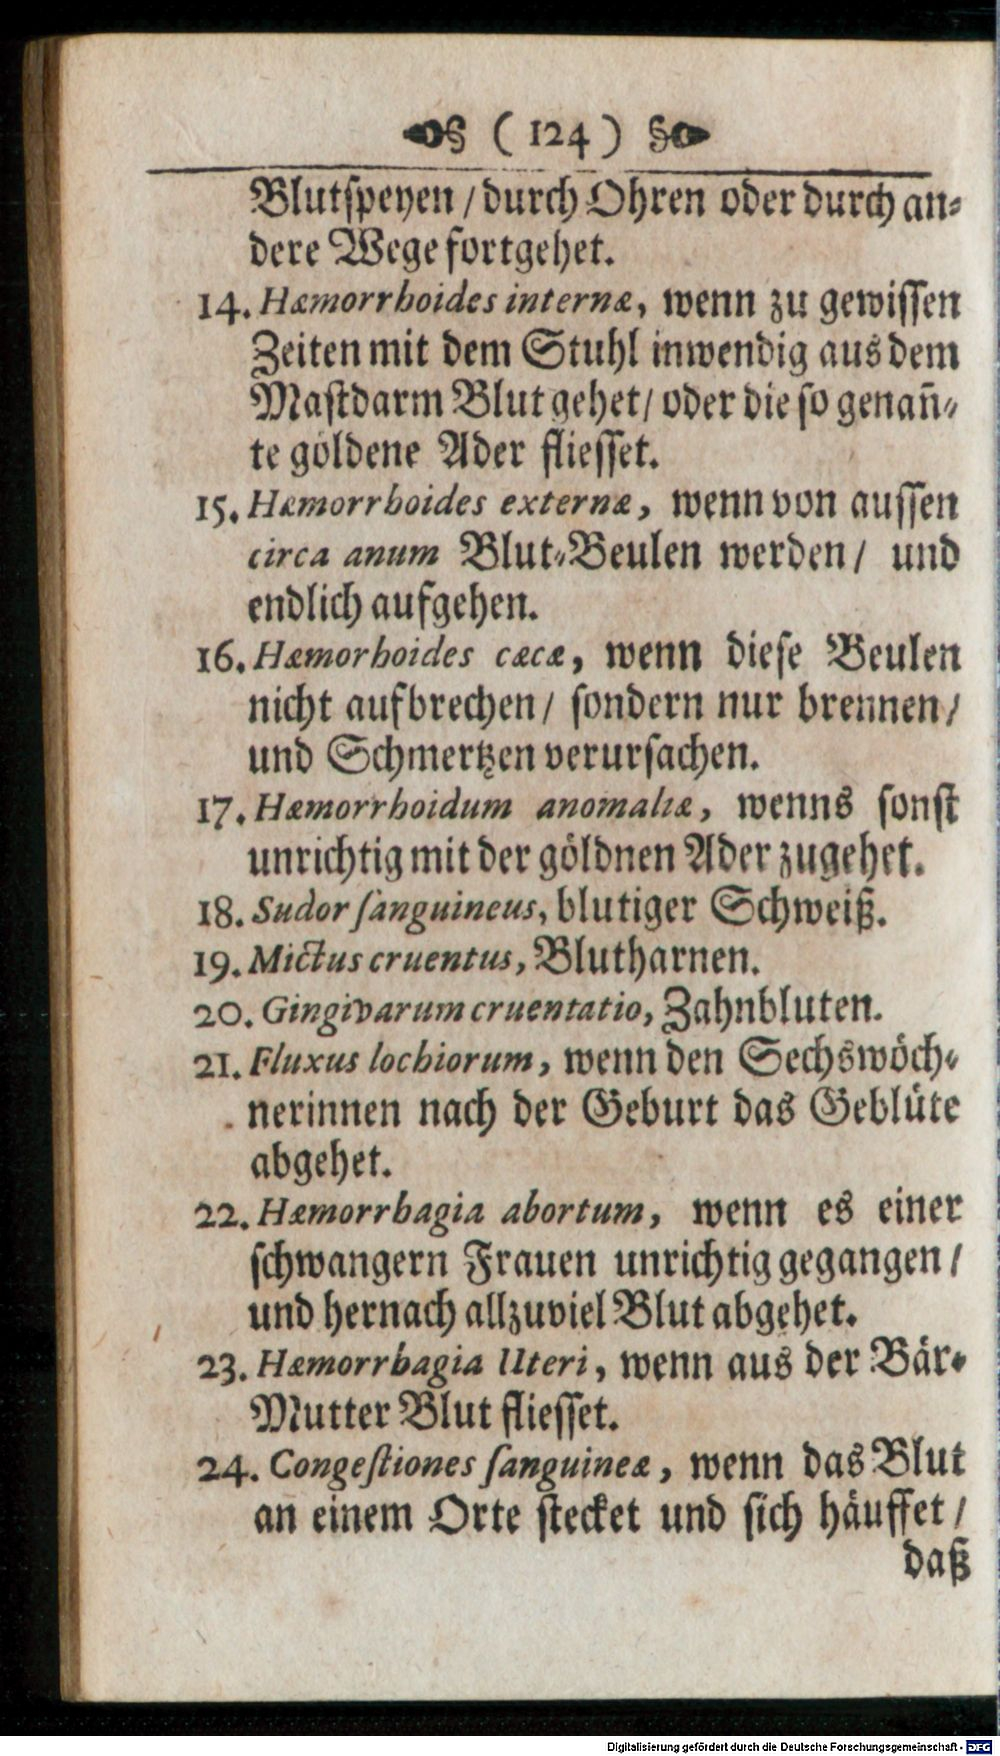 ( 124 )
Blutspeyen / durch Ohren oder durch an⸗
dere Wege fortgehet.
14. Hæmorrhoides internæ, wenn zu gewissen
Zeiten mit dem Stuhl inwendig aus dem
Mastdarm Blut gehet / oder die so genañ⸗
te göldene Ader fliesset.
15. Hæmorrhoides externæ, wenn von aussen
circa anum Blut⸗Beulen werden / und
endlich aufgehen.
16. Hæmorhoides cæcæ, wenn diese Beulen
nicht aufbrechen / sondern nur brennen /
und Schmertzen verursachen.
17. Hæmorrhoidum anomaliæ, wenns sonst
unrichtig mit der göldnen Ader zugehet.
18. Sudor sanguineus, blutiger Schweiß.
19. Mictus cruentus, Blutharnen.
20. Gingivarum cruentatio, Zahnbluten.
21. Fluxus lochiorum, wenn den Sechswöch⸗
nerinnen nach der Geburt das Geblüte
abgehet.
22. Hæmorrhagia abortum, wenn es einer
schwangern Frauen unrichtig gegangen /
und hernach allzuviel Blut abgehet.
23. Hæmorrhagia Uteri, wenn aus der Bär⸗
Mutter Blut fliesset.
24. Congestiones sanguineæ, wenn das Blut
an einem Orte stecket und sich häuffet /
daß
Digitalisierung gefördert durch die Deutsche Forschungsgemeinschaft - DFG